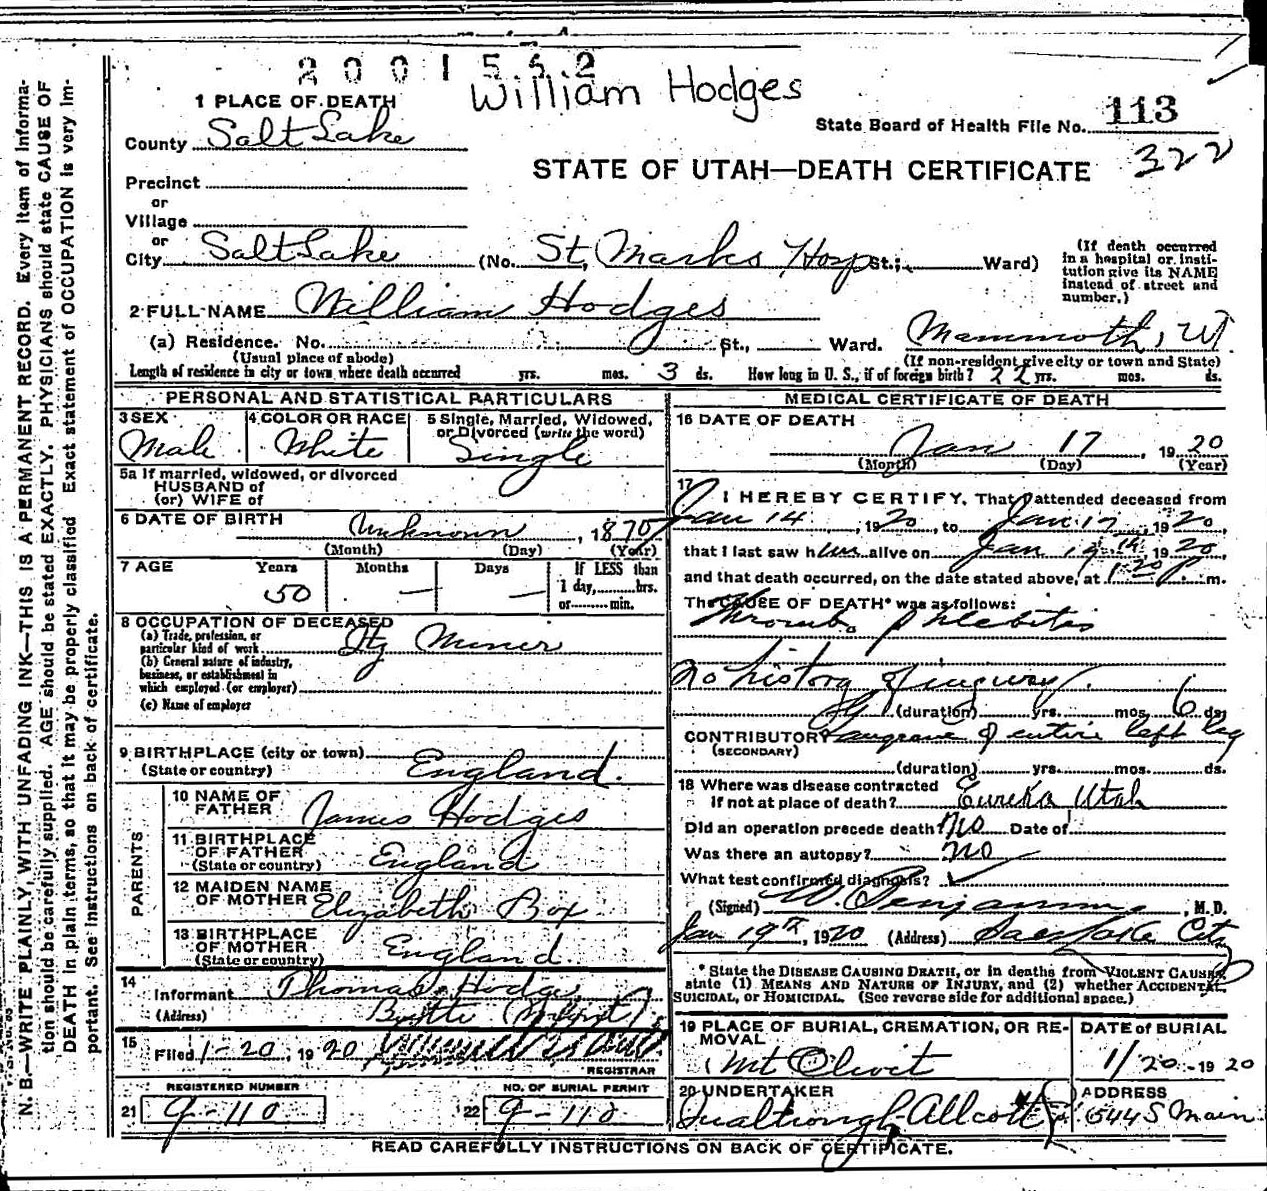 2001552
William Hodges
1 PLACE OF DEATH
County Salt Lake
State Board of Health File No. 113
322
STATE OF UTAH—DEATH CERTIFICATE
Precinct
or
Village
or
City Salt Lake (No. St. Marks Hosp St.; Ward)
(If death occurred in a hospital or institution give its NAME instead of street and number.)
2 FULL NAME William Hodges
(a) Residence. No. St., Ward. Mammoth, Ut.
(Usual place of abode) (If non-resident give city or town and State)
Length of residence in city or town where death occurred yrs. mos. 3 ds. How long in U. S., if of foreign birth? 22 yrs. mos. ds.
PERSONAL AND STATISTICAL PARTICULARS
3 SEX Male
4 COLOR OR RACE White
5 Single, Married, Widowed, or Divorced (write the word) Single
5a If married, widowed, or divorced
HUSBAND of
(or) WIFE of
6 DATE OF BIRTH Unknown, 1870
(Month) (Day) (Year)
7 AGE Years 50 Months — Days —
If LESS than 1 day, hrs. or min.
8 OCCUPATION OF DECEASED
(a) Trade, profession, or particular kind of work Qtz Miner
(b) General nature of industry, business, or establishment in which employed (or employer)
(c) Name of employer
9 BIRTHPLACE (city or town)
(State or country) England.
PARENTS
10 NAME OF FATHER James Hodges
11 BIRTHPLACE OF FATHER (State or country) England
12 MAIDEN NAME OF MOTHER Elizabeth Box
13 BIRTHPLACE OF MOTHER (State or country) England.
14 Informant Thomas Hodges
(Address) Butte
15 Filed 1-20, 1920
REGISTRAR
REGISTERED NUMBER
21 9-110
NO. OF BURIAL PERMIT
22 9-110
MEDICAL CERTIFICATE OF DEATH
16 DATE OF DEATH
Jan 17, 1920
(Month) (Day) (Year)
17 I HEREBY CERTIFY, That I attended deceased from
Jan 14, 1920, to Jan. 17, 1920,
that I last saw him alive on Jan 14, 1920,
and that death occurred, on the date stated above, at 1:20 P. m.
The CAUSE OF DEATH* was as follows:
Thrombo phlebitis
no history of injury.
(duration) yrs. mos. 6 ds.
CONTRIBUTORY Gangrene of entire left leg
(SECONDARY)
(duration) yrs. mos. ds.
18 Where was disease contracted
If not at place of death? Eureka Utah
Did an operation precede death? No Date of
Was there an autopsy? no
What test confirmed diagnosis?
(Signed) W. Benjamin, M. D.
Jan 19th, 1920 (Address) Salt Lake City
* State the DISEASE CAUSING DEATH, or in deaths from VIOLENT CAUSES, state (1) MEANS AND NATURE OF INJURY, and (2) whether ACCIDENTAL, SUICIDAL, or HOMICIDAL. (See reverse side for additional space.)
19 PLACE OF BURIAL, CREMATION, OR REMOVAL Mt Olivet
DATE of BURIAL 1/20-1920
20 UNDERTAKER Allcott
ADDRESS 544 S Main
READ CAREFULLY INSTRUCTIONS ON BACK OF CERTIFICATE.
N. B.—WRITE PLAINLY, WITH UNFADING INK—THIS IS A PERMANENT RECORD. Every item of information should be carefully supplied. AGE should be stated EXACTLY. PHYSICIANS should state CAUSE OF DEATH in plain terms, so that it may be properly classified. Exact statement of OCCUPATION is very important. See instructions on back of certificate.